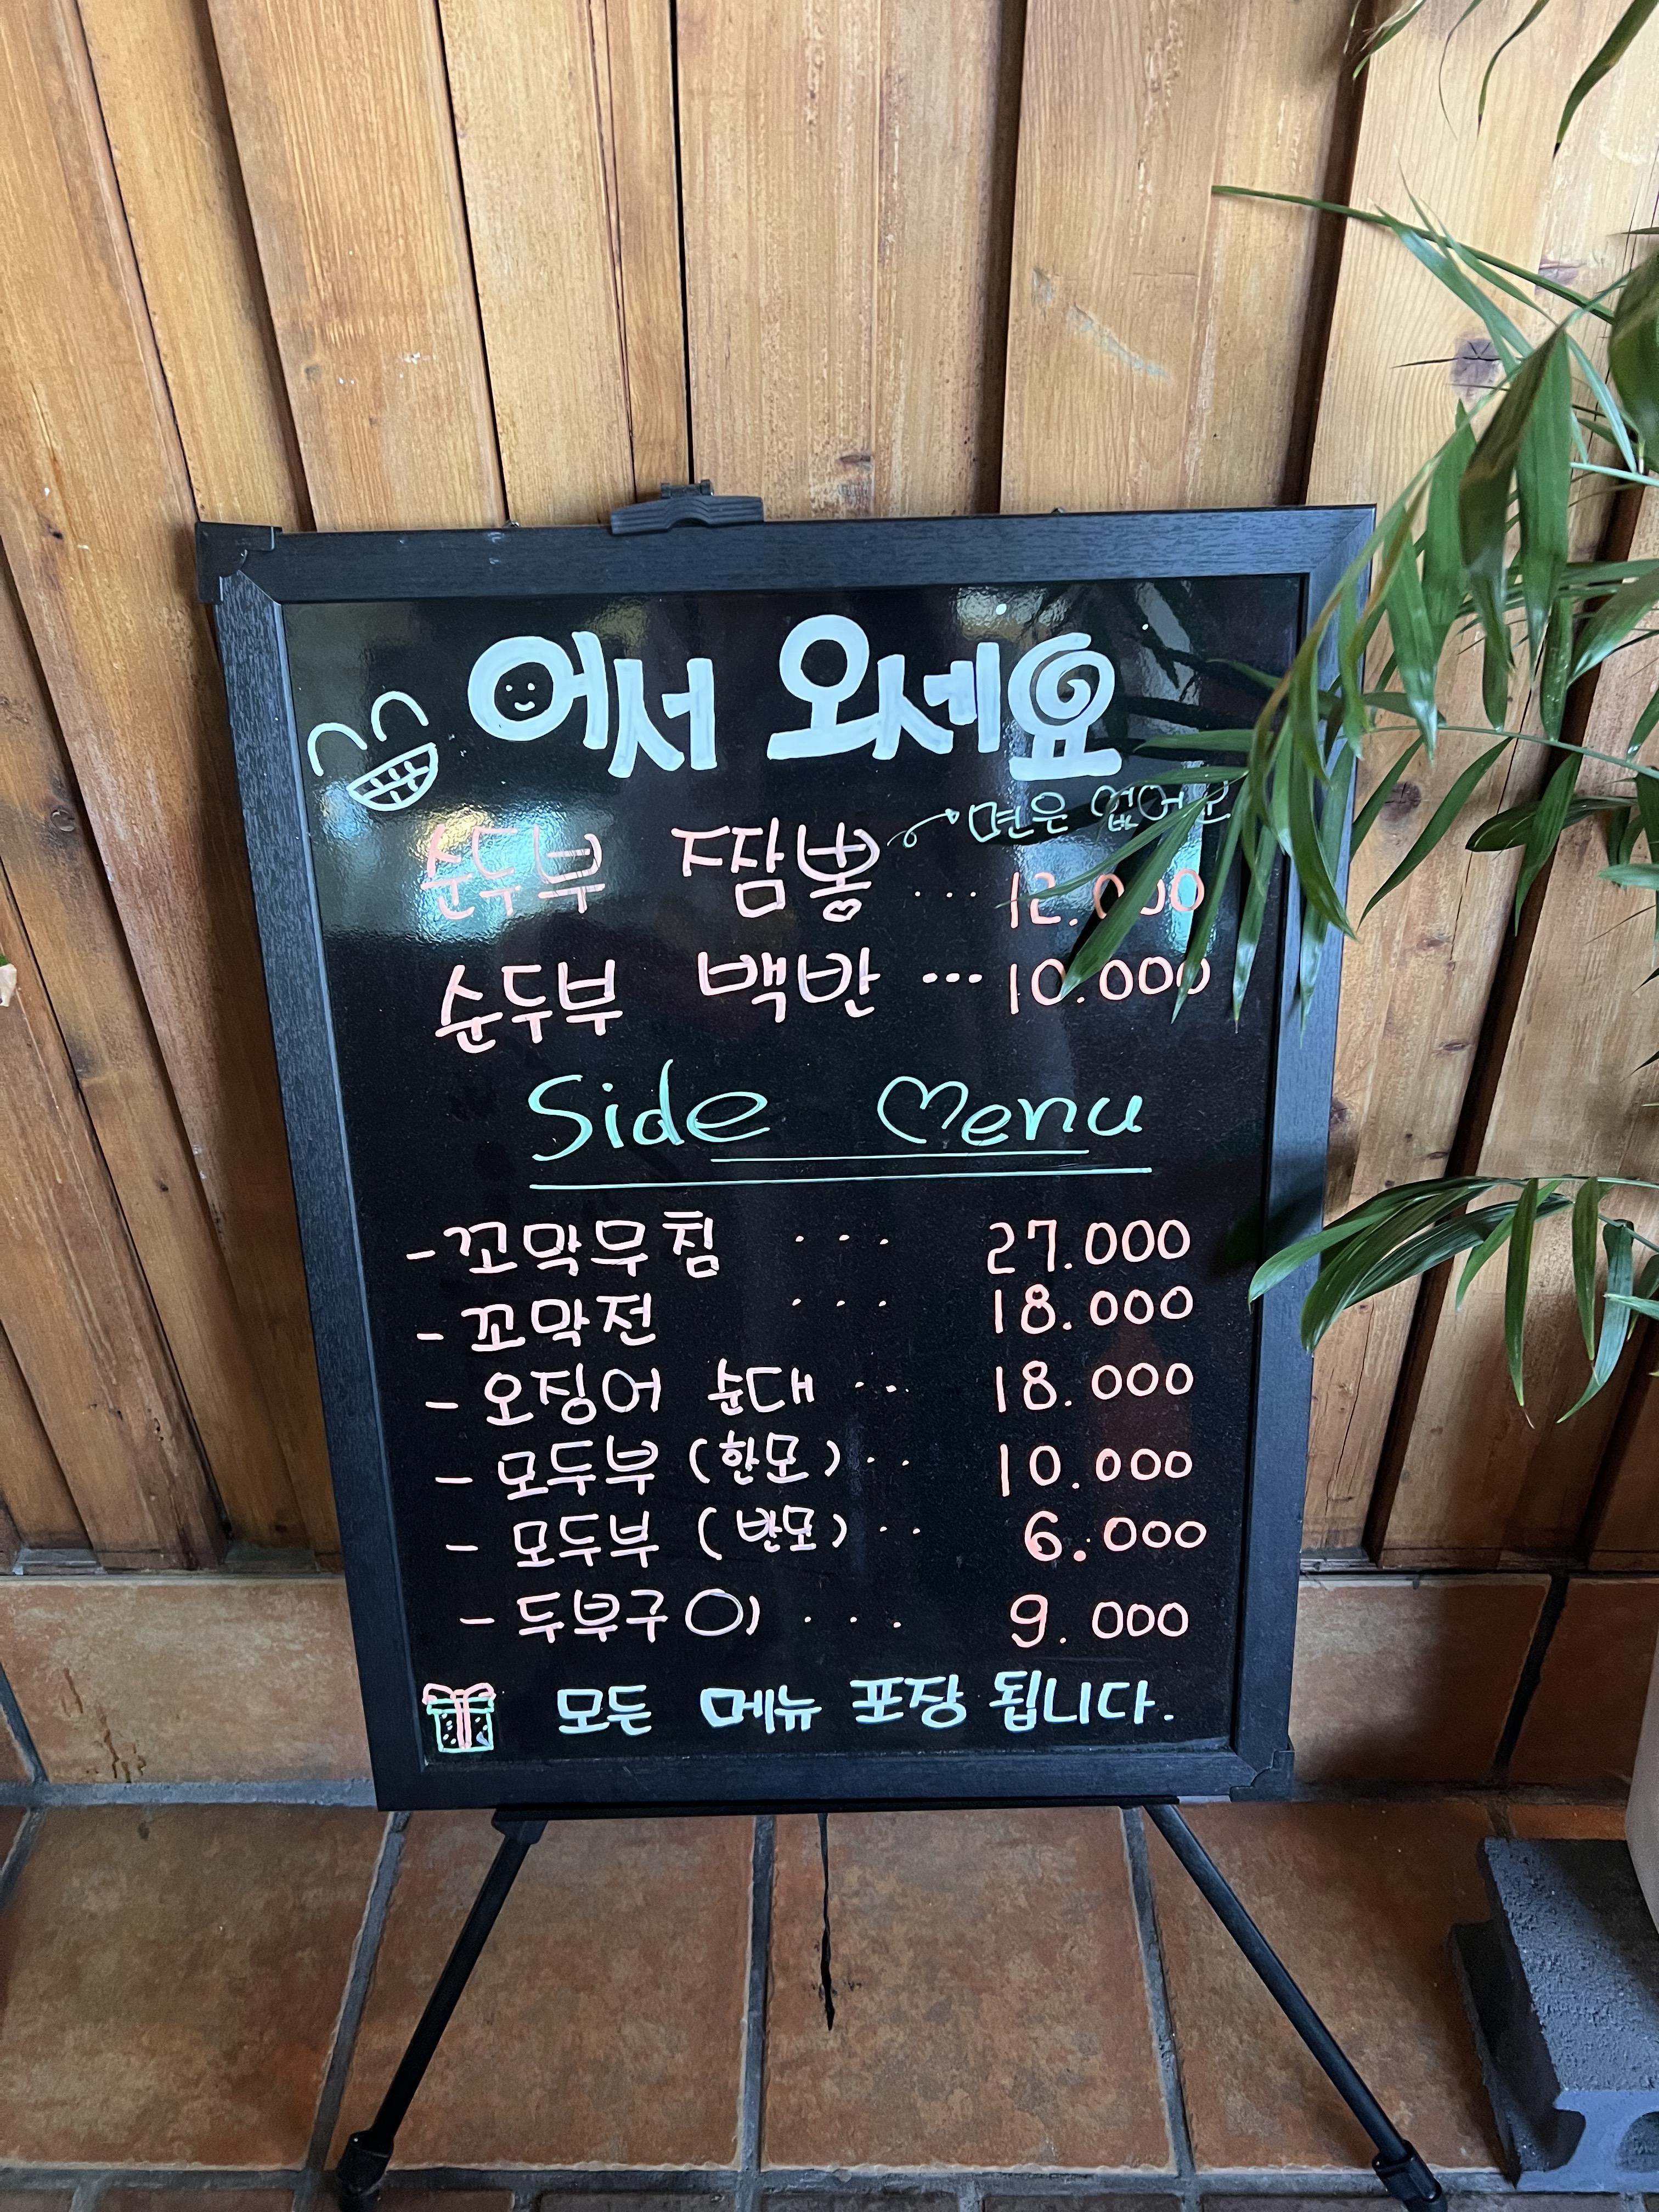 어서 오세요
면은 없어요
순두부 짬뽕 ... 12.000
순두부 백반 ... 10.000
Side Menu
- 꼬막무침 ... 27.000
- 꼬막전 ... 18.000
- 오징어 순대 ... 18.000
- 모두부 (한모) .. 10.000
- 모두부 (반모) .. 6.000
- 두부구이 ... 9.000
모든 메뉴 포장 됩니다.